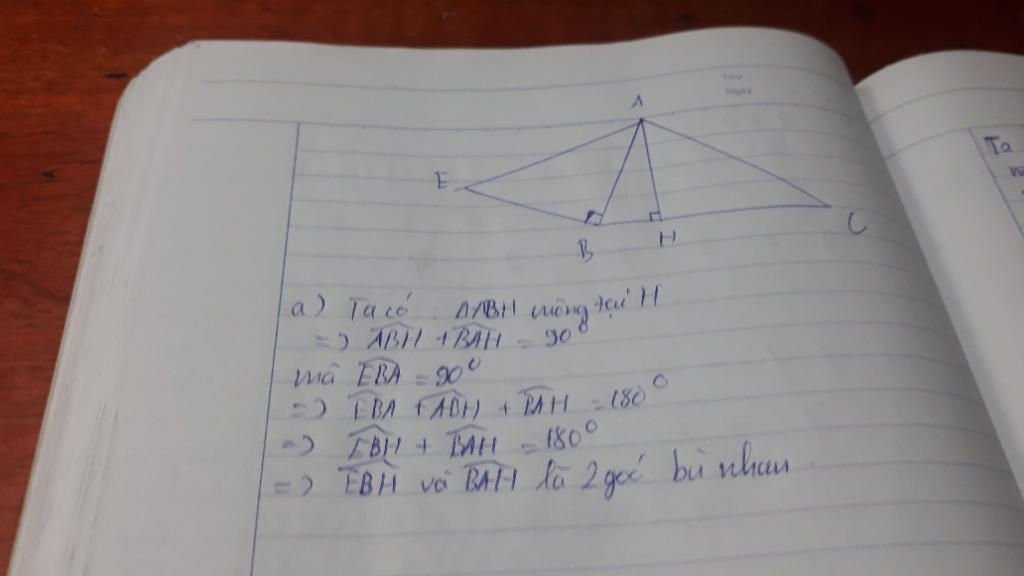 Thứ
Ngày
A
E
B
H
C
Ta
a) Ta có : ΔABH vuông tại H
=> \widehat{ABH} + \widehat{BAH} = 90⁰
mà \widehat{EBA} = 90⁰
=> \widehat{EBA} + \widehat{ABH} + \widehat{BAH} = 180⁰
=> \widehat{EBH} + \widehat{BAH} = 180⁰
=> \widehat{EBH} và \widehat{BAH} là 2 góc bù nhau